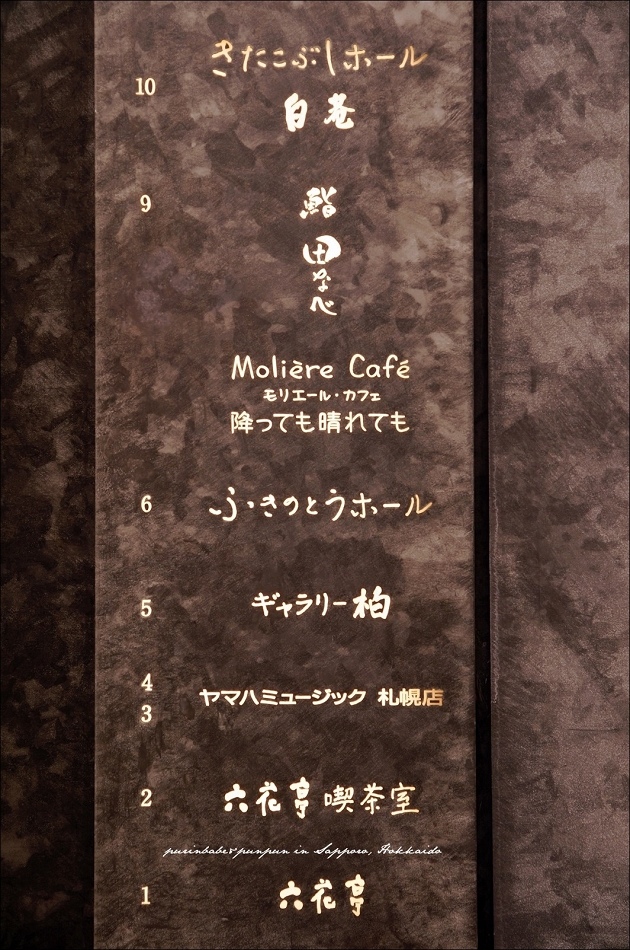 きたこぶしホール
10
白菴
9
鮨
田なべ
Molière Café
モリエール・カフェ
降っても晴れても
6
ふきのとうホール
5
ギャラリー柏
4
3
ヤマハミュージック 札幌店
2
六花亭 喫茶室
purinbabe&punpun in Sapporo, Hokkaido
1
六花亭